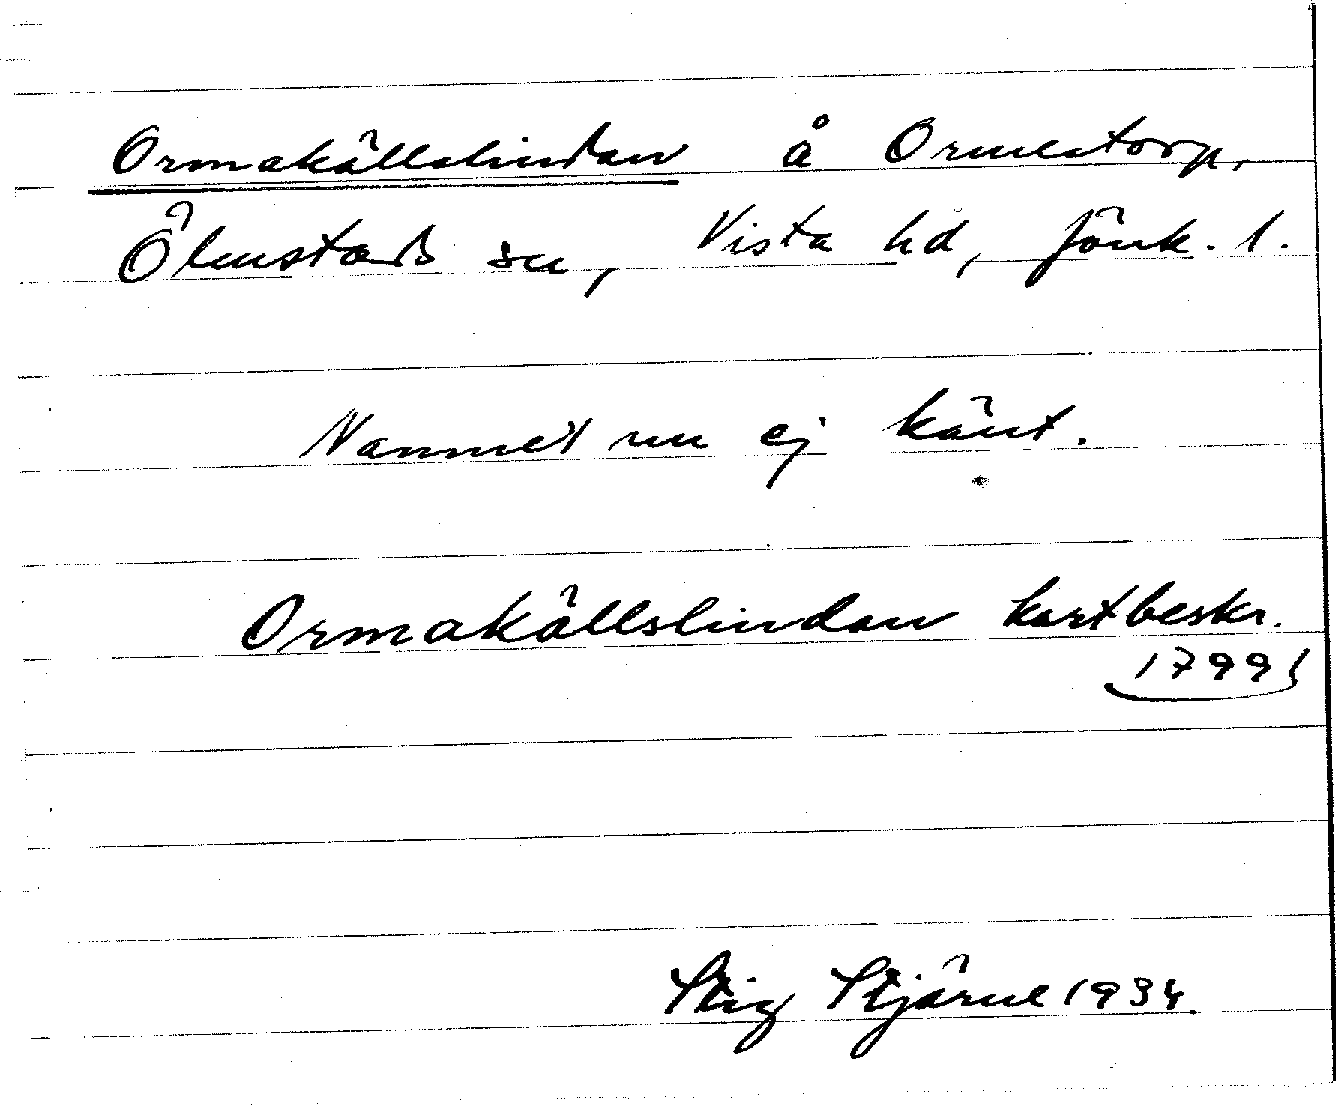 Ormakällslindan å Ormestorp,
Ölmstad sn, Vista hd, Jönk. l.
Namnet nu ej känt.
Ormakällslindan kartbeskr.
1799
Stig Stjärne 1934.